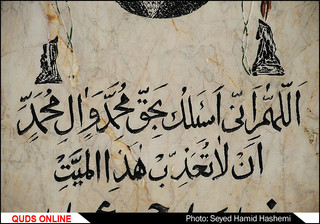 اَللّهُمَّ اِنّی اَسئَلُكَ بِحَقِّ مُحَمَّدٍ وَ الِ مُحَمَّدٍ
اَنْ لا تُعَذِّبَ هٰذَا المَیِّتِ
QUDS ONLINE
Photo: Seyed Hamid Hashemi